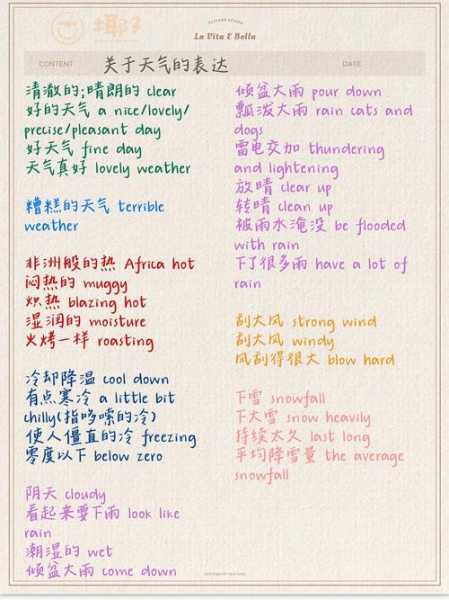 椰子
La Vita È Bella
CONTENT
关于天气的表达
DATE
清澈的;晴朗的 clear
好的天气 a nice/lovely/
precise/pleasant day
好天气 fine day
天气真好 lovely weather
糟糕的天气 terrible
weather
非洲般的热 Africa hot
闷热的 muggy
炽热 blazing hot
湿润的 moisture
火烤一样 roasting
冷却降温 cool down
有点寒冷 a little bit
chilly(指哆嗦的冷)
使人僵直的冷 freezing
零度以下 below zero
阴天 cloudy
看起来要下雨 look like
rain
潮湿的 wet
倾盆大雨 come down
倾盆大雨 pour down
瓢泼大雨 rain cats and
dogs
雷电交加 thundering
and lightening
放晴 clear up
转晴 clean up
被雨水淹没 be flooded
with rain
下了很多雨 have a lot of
rain
刮大风 strong wind
刮大风 windy
风刮得很大 blow hard
下雪 snowfall
下大雪 snow heavily
持续太久 last long
平均降雪量 the average
snowfall